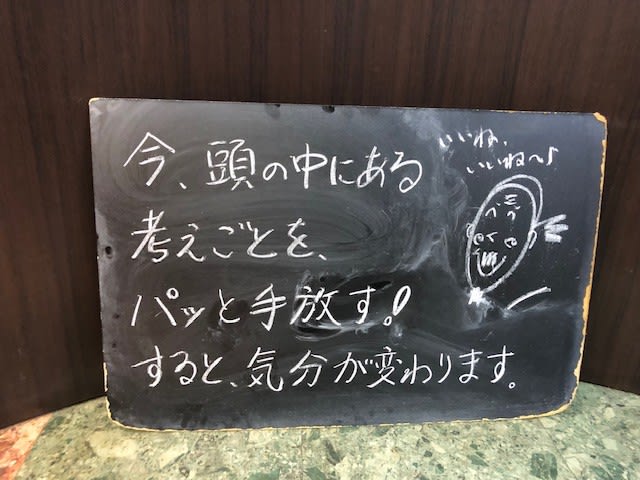 今、頭の中にある
考えごとを、
パッと手放す!
すると、気分が変わります。
いいね、
いいね〜♪